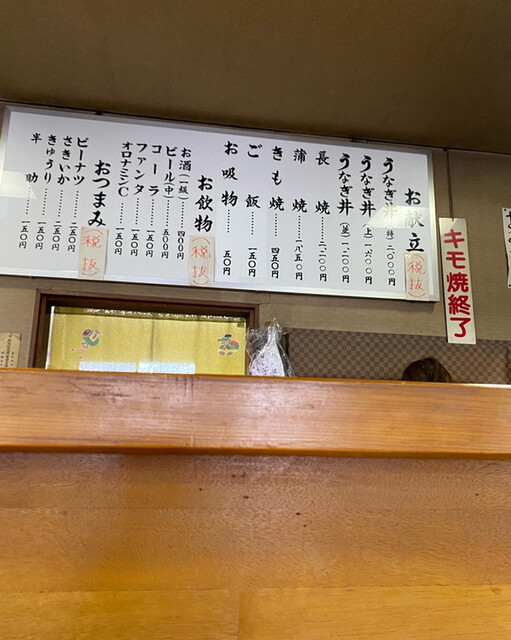 お献立
(税抜)
うなぎ丼(特)二、〇〇〇円
うなぎ丼(上)一、六〇〇円
うなぎ丼(並)一、二〇〇円
長焼……二、二〇〇円
蒲焼……一、八五〇円
きも焼……四五〇円
ご飯……一五〇円
お吸物……五〇円
お飲物
(税抜)
お酒(一級)……四〇〇円
ビール(中)……五〇〇円
コーラ……一五〇円
ファンタ……一五〇円
オロナミンC……一五〇円
おつまみ
(税抜)
ピーナツ……一五〇円
さきいか……二五〇円
きゅうり……一五〇円
半助……一五〇円
キモ焼終了